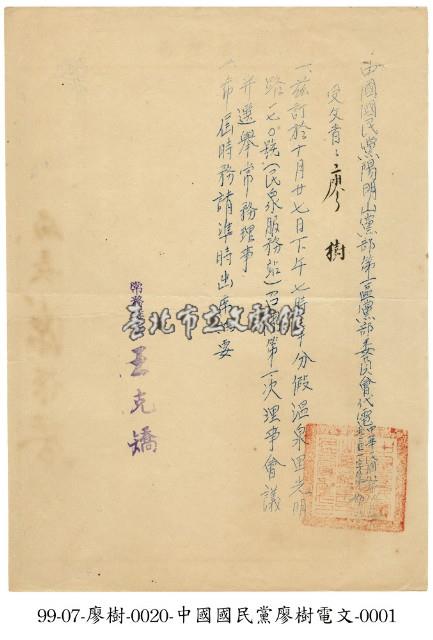 中國國民黨陽明山黨部第一區黨部委員會代電
受文者:廖樹
一、茲訂於十月廿七日下午七時半分假溫泉里光明
路一七〇號(民泉服務站)召開第一次理事會議
并選舉常務理事
一、希屆時務請準時出席為要
常務
王克矯
臺北市立文獻館
99-07-廖樹-0020-中國國民黨廖樹電文-0001